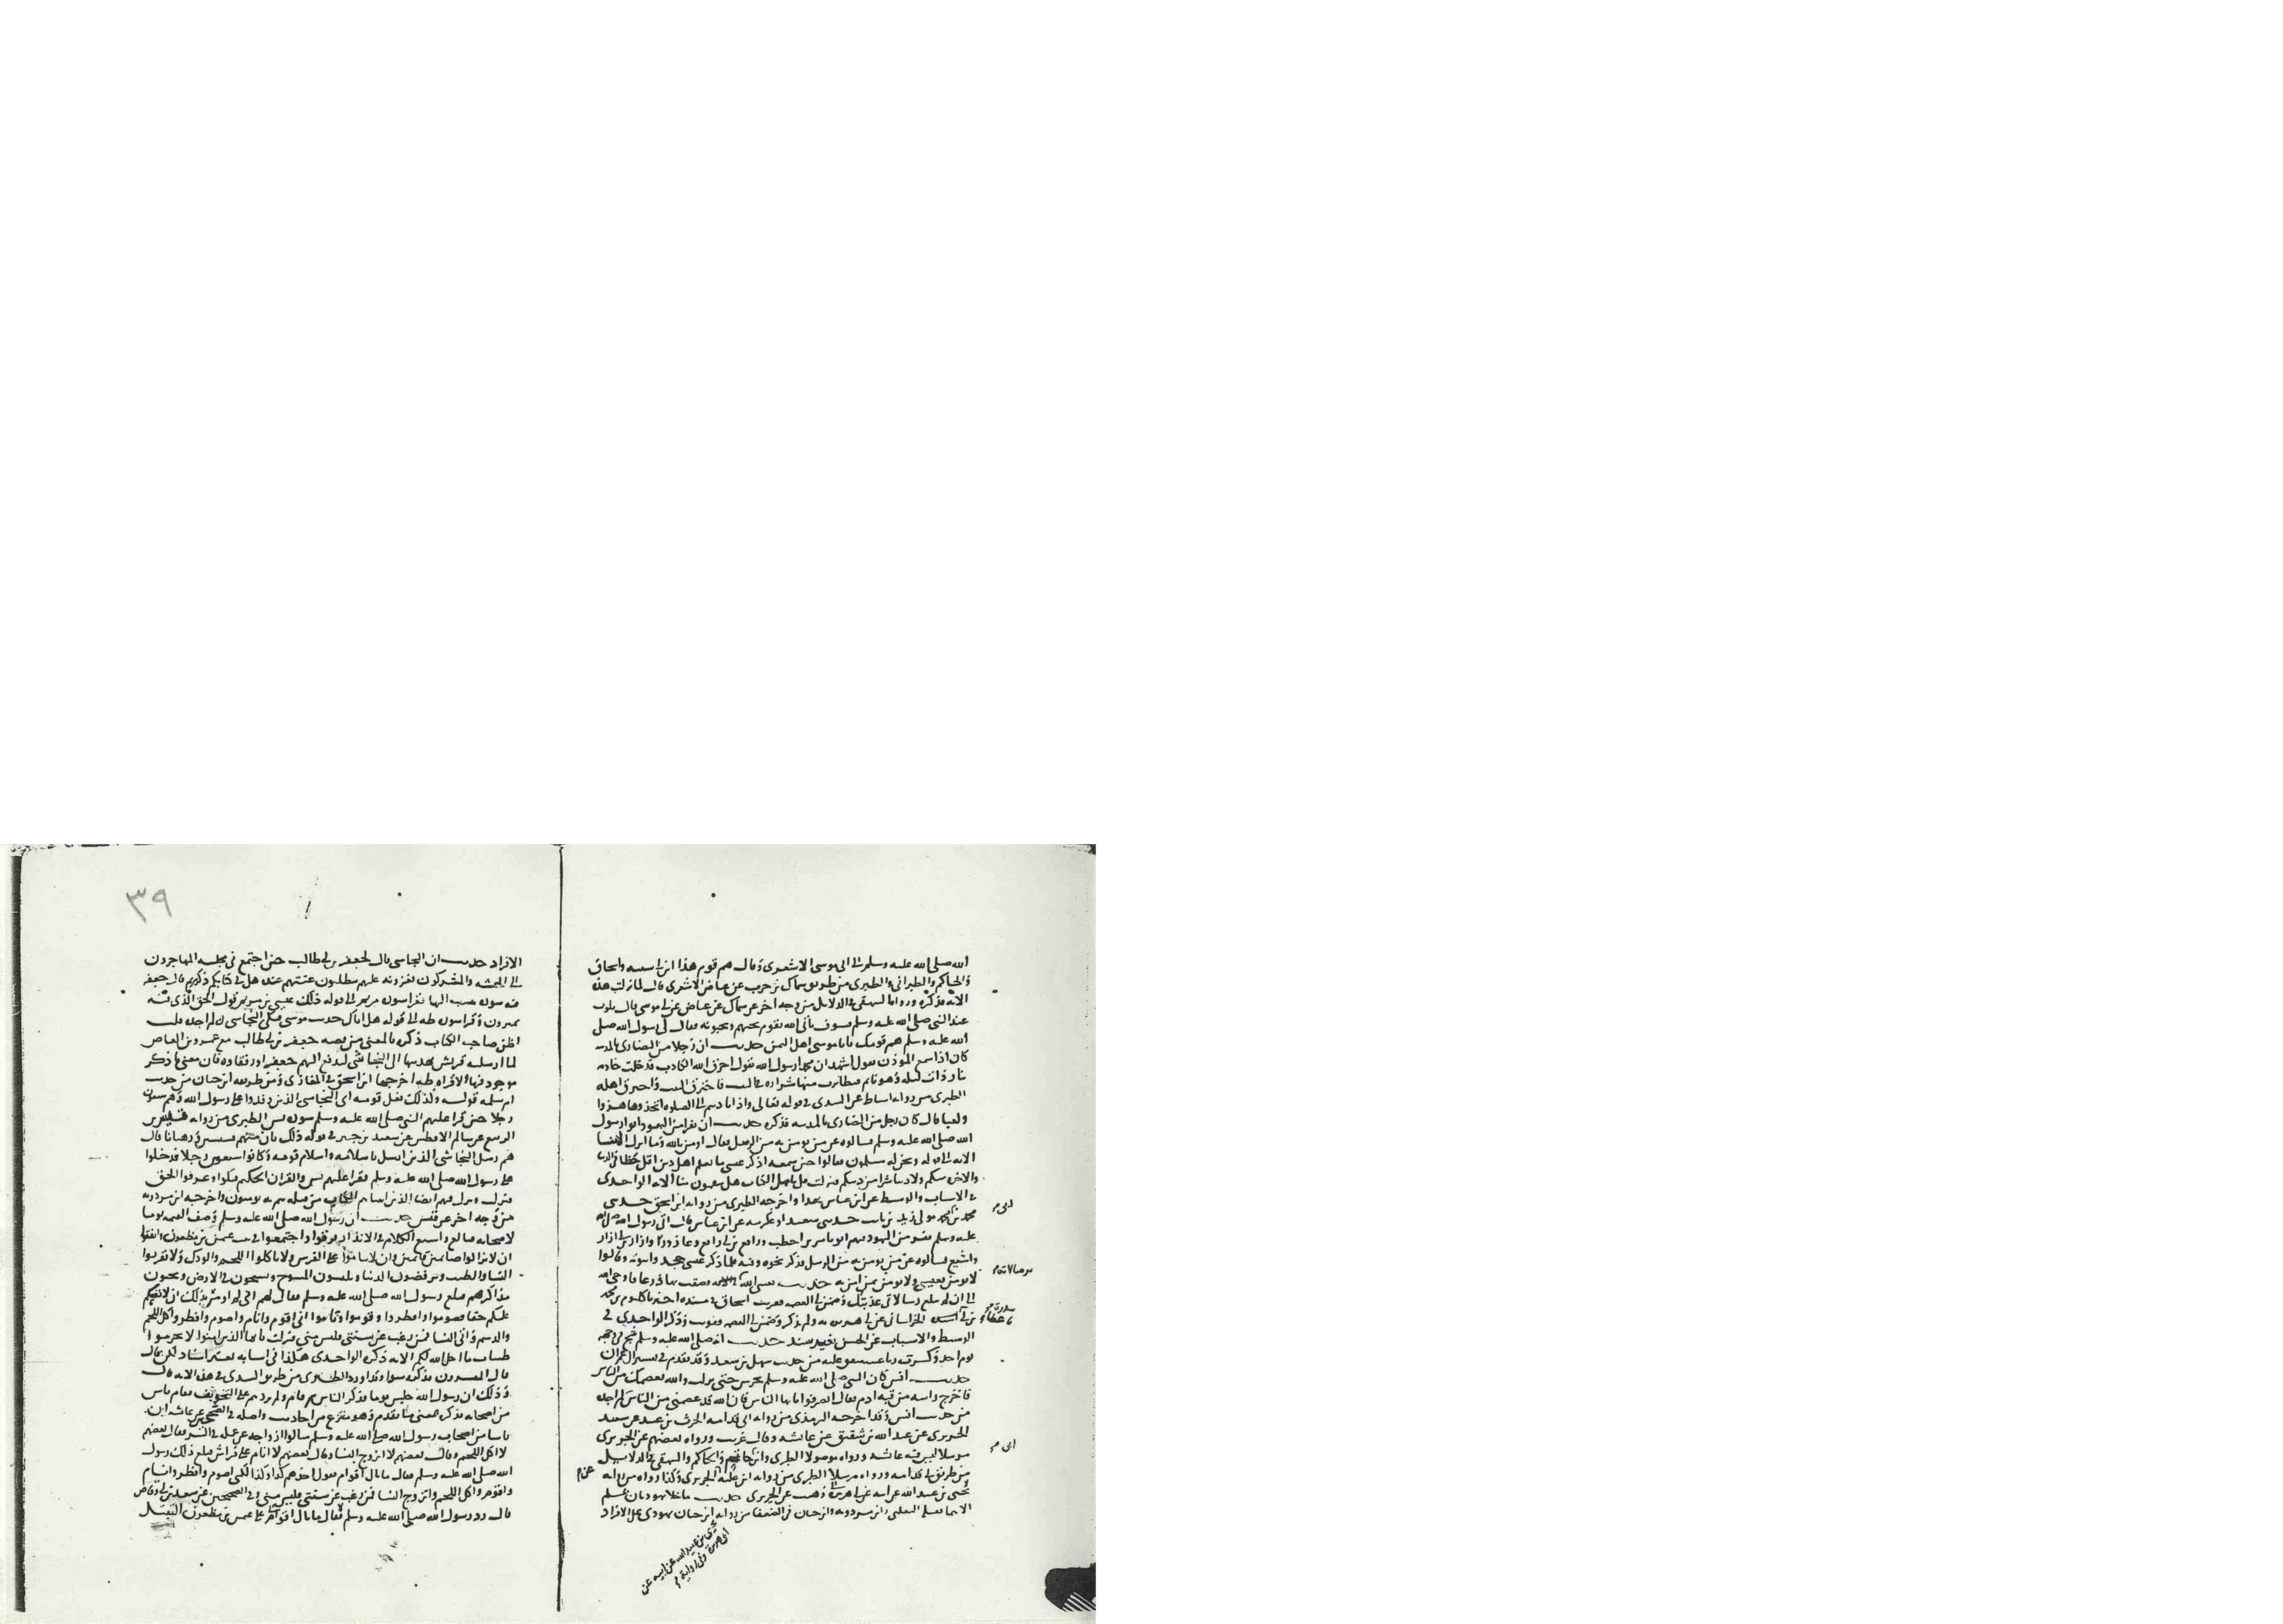 الله صلى الله عليه وسلم الى ابى موسى الاشعرى وقال هم قوم هذا ابن ابى شيبه واسحاق
والحاكم والطبرانى والطبرى من طريق سماك بن حرب عن عياض الاشعرى قال لما نزلت هذه
الآية فذكره ورواه البيهقى فى الدلايل من وجه آخر عن سماك عن عياض عن ابى موسى قال تلوت
عند النبى صلى الله عليه وسلم فسوف يأتى الله بقوم يحبهم ويحبونه فقال لى رسول الله صلى
الله عليه وسلم هم قومك يا با موسى اهل اليمن حديث ان رجلا من النصارى بالمدينه
كان اذا سمع الموذن يقول اشهد ان محمدا رسول الله يقول احرق الله الكاذب فدخلت خادمه
بنار ذات ليله وهو نايم فتطايرت منها شراره فى البيت فاحترق البيت واحترق اهله
الطبرى من روايه اسباط عن السدى فى قوله تعالى واذا ناديتم الى الصلوه اتخذوها هزوا
ولعبا قال كان رجل من النصارى بالمدينه فذكره حديث ان نفرا من اليهود اتوا رسول
الله صلى الله عليه وسلم فسالوه عن من يومن به من الرسل فقال اومن بالله وما انزل الينا
الآيه الى قوله ونحن له مسلمون فقالوا حين سمعوا ذكر عيسى ما نعلم اهل دين اقل حظا فى الدنيا
والاخره منكم ولا دينا شرا من دينكم فنزلت قل يا اهل الكتاب هل تنقمون منا الآيه الواحدى
فى الاسباب والوسيط عن ابن عباس بهذا واخرجه الطبرى من روايه ابن اسحق حدثنى
محمد بن ابى محمد مولى زيد بن ثابت حدثنى سعيد او عكرمه عن ابن عباس قال اتى رسول الله صلى الله
عليه وسلم نفر من اليهود فيهم ابو ياسر بن اخطب ورافع بن ابى رافع وعازورا وازار بن ابى ازار
واشيع فسالوه عن من يومن به من الرسل فذكر نحوه وفيه فلما ذكر عيسى جحدوا نبوته وقالوا
لا نومن بعيسى ولا نومن بمن امن به حديث بعثنى الله برسالاته فضقت بها ذرعا فاوحى الله
الى ان لم تبلغ رسالاتى عذبتك وضمن لى العصمه فقويت اسحاق فى مسنده اخبرنا كلثوم بن محمد
بن ابى سدره حدثنا عطاء الخراسانى عن ابى هريره به ولم يذكر وضمن لى العصمه فقويت وذكر الواحدى فى
الوسيط والاسباب عن الحسن بغير سند حديث انه صلى الله عليه وسلم شج فى وجهه
يوم احد وكسرت رباعيته متفق عليه من حديث سهل بن سعد وقد تقدم فى تفسير ال عمران
حديث انس كان النبى صلى الله عليه وسلم يحرس حتى نزلت والله يعصمك من الناس
فاخرج راسه من قبه ادم فقال انصرفوا يا ايها الناس فان الله قد عصمنى من الناس لم اجده
من حديث انس وقد اخرجه الترمذى من روايه ابى قدامه الحرث بن عبيد عن سعيد
الجريرى عن عبد الله بن شقيق عن عائشه وقال غريب ورواه بعضهم عن الجريرى
مرسلا ليس فيه عائشه ورواه موصولا الطبرى وابن ابى حاتم والحاكم والبيهقى فى الدلايل
من طريق ابى قدامه ورواه مرسلا الطبرى من روايه ابن عليه عن الجريرى وكذا رواه من روايه
يحيى بن عبد الله عن ابيه عن ابى هريره وهيب عن الجريرى حديث ما خلا يهوديان بمسلم
الا هما بقتله الثعلبى وابن مردويه وابن حبان فى الضعفا من روايه
يحيى بن عبيد الله عن ابيه عن
ابى هريره وفى روايه
ابن حبان يهودى على الافراد
٣٩
الافراد حديث ان النجاشى قال لجعفر بن ابى طالب حين اجتمع فى مجلسه المهاجرون
الى الحبشه والمشركون يغرونه عليهم يتطلبون عنتهم عنده هل فى كتابكم ذكر مريم قال جعفر
فيه سوره تنسب اليها فقرا سوره مريم الى قوله ذلك عيسى بن مريم قول الحق الذى فيه
يمترون وقرا سوره طه الى قوله هل اتاك حديث موسى فبكى النجاشى لم اجده قلت
اظن صاحب الكتاب ذكره بالمعنى من قصه جعفر بن ابى طالب مع عمرو بن العاص
لما ارسلته قريش بهديتها الى النجاشى ليدفع اليهم جعفرا ورفقاه فان معنى ما ذكر
موجود فيها الا قراه طه اخرجها ابن اسحق فى المغازى ومن طريقه ابن حبان من حديث
ام سلمه قوله وكذلك فعل قومه اى النجاشى الذين وفدوا على رسول الله وهم سبعون
رجلا حين قرا عليهم النبى صلى الله عليه وسلم سوره يس الطبرى من روايه قيس بن
الربيع عن سالم الافطس عن سعيد بن جبير فى قوله ذلك بان منهم قسيسين ورهبانا قال
هم رسل النجاشى الذين ارسل باسلامه واسلام قومه وكانوا سبعين رجلا فدخلوا
على رسول الله صلى الله عليه وسلم فقرا عليهم يس والقران الحكيم فبكوا وعرفوا الحق
فنزلت ونزل فيهم ايضا الذين اتيناهم الكتاب من قبله هم به يومنون واخرجه ابن مردويه
من وجه اخر عن قيس حديث ان رسول الله صلى الله عليه وسلم وصف القيمه يوما
لاصحابه فبالغ واشبع الكلام فى الانذار فرقوا واجتمعوا فى بيت عثمن بن مظعون واتفقوا
ان لا يزالوا صائمين قائمين وان لا يناموا على الفرش ولا ياكلوا اللحم والودك ولا يقربوا
النساء والطيب ويرفضوا الدنيا ويلبسون المسوح ويسيحون فى الارض ويجبون
مذاكيرهم فبلغ رسول الله صلى الله عليه وسلم فقال لهم انى لم اومر بذلك ان لانفسكم
عليكم حقا فصوموا وافطروا وقوموا وناموا فانى اقوم وانام واصوم وافطر واكل اللحم
والدسم واتى النساء فمن رغب عن سنتى فليس منى فنزلت يا ايها الذين امنوا لا تحرموا
طيبات ما احل الله لكم الآيه ذكره الواحدى هكذا فى اسبابه بغير اسناد لكن قال
قال المفسرون فذكره سوا وقد اورد الطبرى من طريق السدى فى هذه الآيه قال
وذلك ان رسول الله جلس يوما فذكر الناس ثم قام ولم يزدهم على التخويف فقام ناس
من اصحابه فذكره بمعنى ما تقدم وهو منتزع من احاديث واصله فى الصحيحين عن عائشه ان
ناسا من اصحاب رسول الله صلى الله عليه وسلم سالوا ازواجه عن عمله فى السر فقال بعضهم
لا اكل اللحم وقال بعضهم لا اتزوج النسا وقال بعضهم لا انام على فراش فبلغ ذلك رسول
الله صلى الله عليه وسلم فقال ما بال اقوام يقول احدهم كذا وكذا لكنى اصوم وافطر وانام
واقوم واكل اللحم واتزوج النسا فمن رغب عن سنتى فليس منى وفى الصحيحين عن سعد بن ابى وقاص
قال رد رسول الله صلى الله عليه وسلم على عثمن بن مظعون التبتل